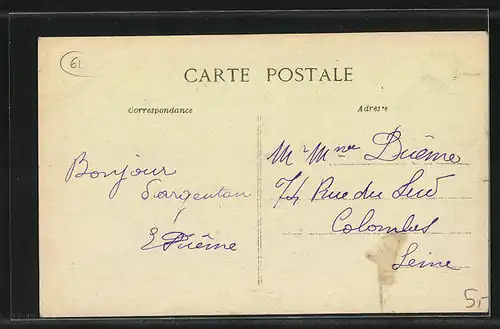 61
CARTE POSTALE
Correspondance
Adresse
Bonjour
d'argentan
Mr Mme
74 Rue du Sud
Colombes
Seine
5,-